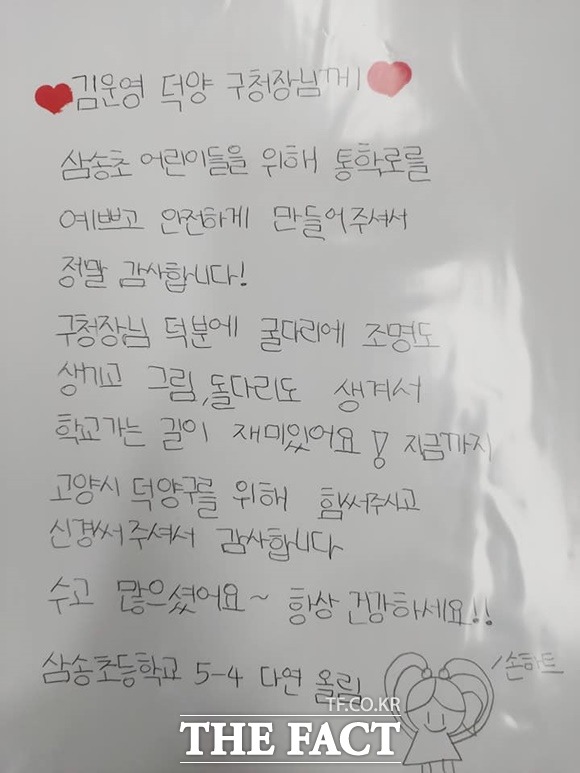 김운영 덕양 구청장님께
삼송초 어린이들을 위해 통학로를
예쁘고 안전하게 만들어주셔서
정말 감사합니다!
구청장님 덕분에 굴다리에 조명도
생기고 그림, 돌다리도 생겨서
학교가는 길이 재미있어요! 지금까지
고양시 덕양구를 위해 힘써주시고
신경써주셔서 감사합니다
수고 많으셨어요~ 항상 건강하세요!!
삼송초등학교 5-4 다연 올림
/손하트
TF.CO.KR
THE FACT